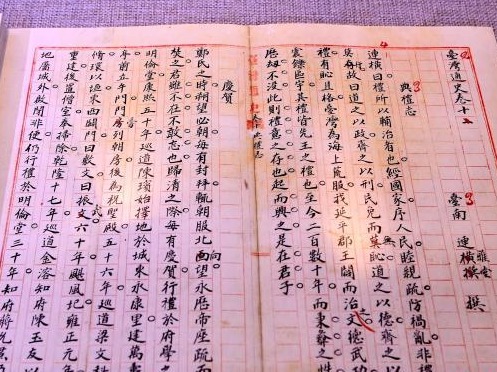 臺灣通史卷十
臺南 連橫 撰
雅堂
典禮志
連橫曰禮所以輔治者也經國家序人民睦親疏防禍亂非禮
莫府故曰道之以政齊之以刑民免而無恥道之以德齊之以
禮有恥且格臺灣為海上荒服我延平郡王闢而治之文德武功
震鑠區宇其禮皆先王之禮也至今二百數十年而秉彝之性
歷劫不沒此則禮意之存也起而興之是在君子
典禮志
慶賀
鄭氏之時朔望必朝每有封拜輒朝服北向望永曆帝座疏而
焚之君雖不在不敢忘也歸清之際每有慶賀行禮於府學
明倫堂康熙五十年巡道陳璸始擇地於城東永康里建萬壽
立午門門旁列朝房後為祝聖殿五十六年巡道梁文科
脩環以池東西闢門曰敷文曰振武六十年颶風圮雍正元年
重建後置僧室奉掃除乾隆十七年巡道金溶知府陳玉友以
地屬城外啟閉非便仍行禮於明倫堂三十年知府蔣允